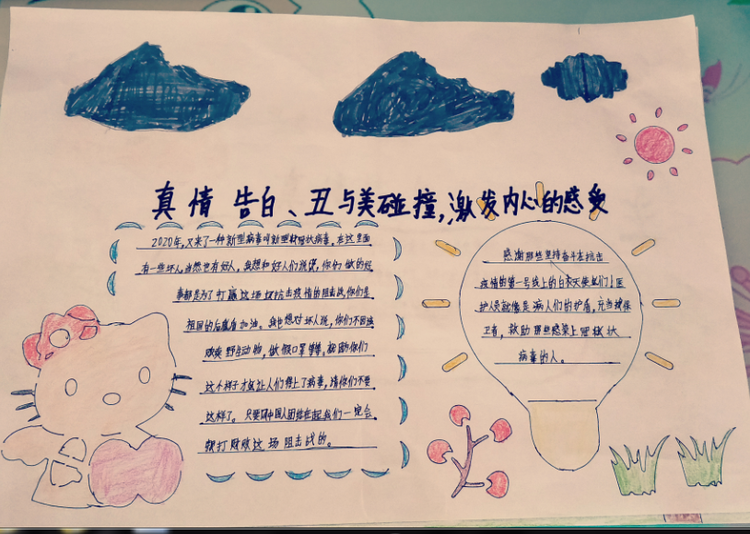 真情告白、丑与美碰撞,激发内心的感受
2020年,又来了一种新型病毒叫新型冠状病毒,在这里面
有一些坏人,当然也有好人。我想和好人们说说,你们做的
事都是为了打赢这场 抗击疫情的阻击战,你们是
祖国的后盾 加油。我也想对坏人说,你们不因
贩卖野生动物,做假口罩等,
这个样子才让人们得上了病毒,请你们不要
这样了。只要 中国人团结在起我们一定会
打 这场阻击战的。
感谢那些坚持奋斗在抗击
疫情的第一号线上的白衣天使们!医
护人员就像是病人们的护盾,充当
卫者,救助那些感染上冠状状
病毒的人。